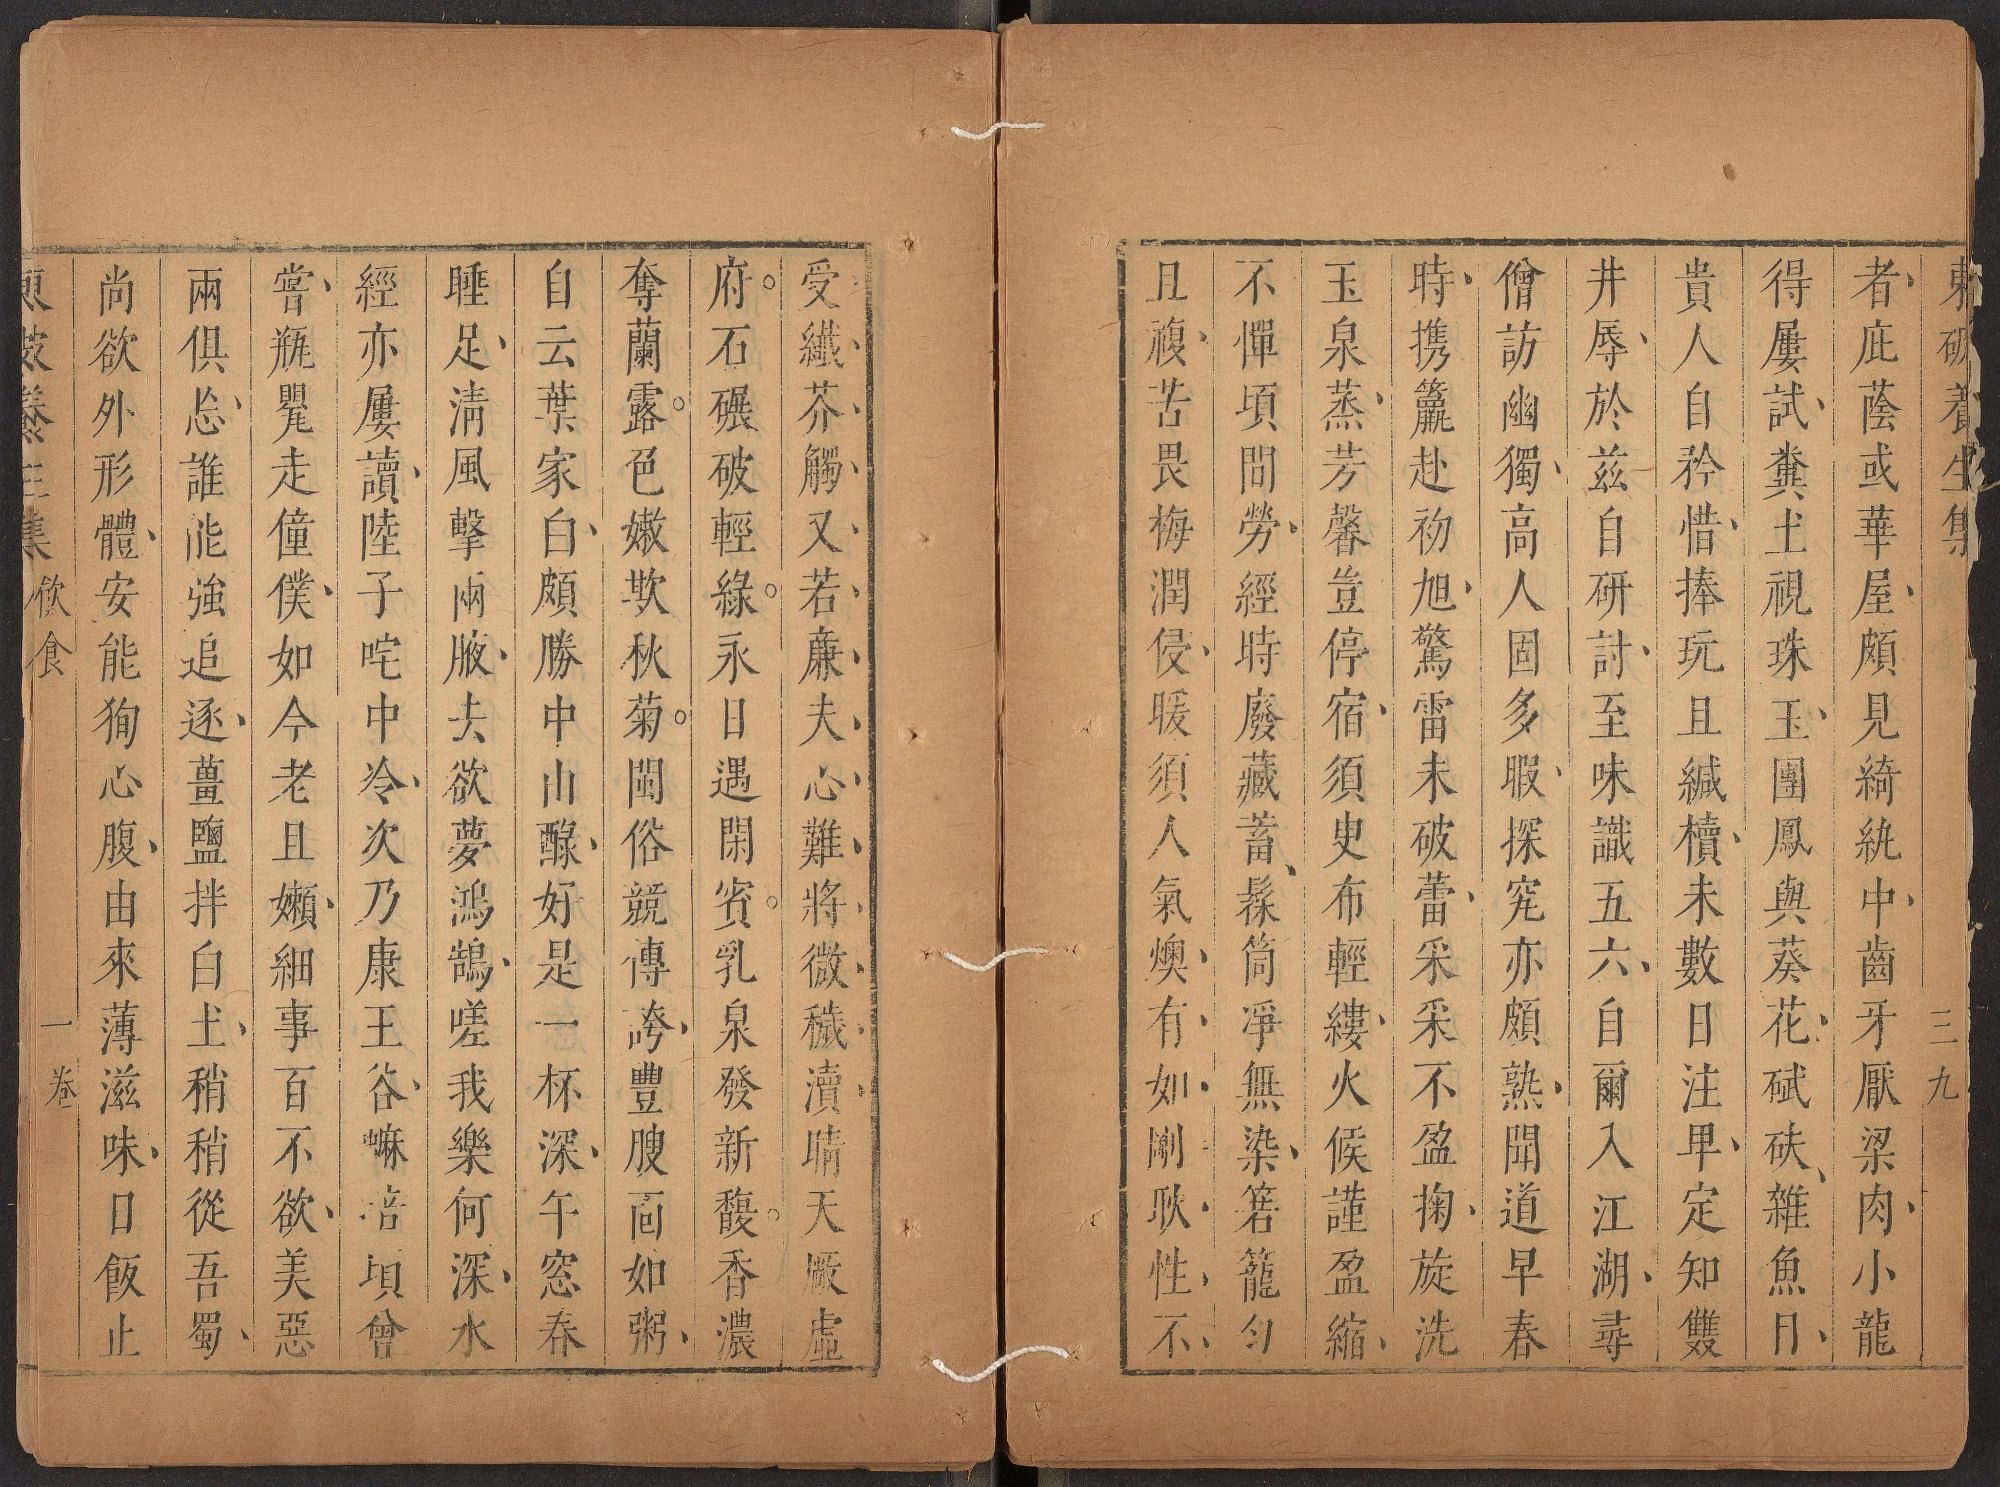 東坡養生集
三九
者庇蔭或華屋頗見綺紈中齒牙厭梁肉小龍
得屢試糞土視珠玉團鳳與葵花碔砆雜魚目
貴人自矜惜捧玩且緘櫝未數日注卑定知雙
井辱於兹自研討至味識五六自爾入江湖尋
僧訪幽獨高人固多暇探究亦頗熟聞道早春
時携籯赴初旭驚雷未破蕾采采不盈掬旋洗
玉泉蒸芳馨豈停宿須臾布輕縷火候謹盈縮
不憚頃間勞經時廢藏蓄髹筒凈無染箬籠匀
且複苦畏梅潤侵暖須人氣燠有如剛耿性不
受纖芥觸又若廉夫心難將微穢瀆晴天厰虛
府石碾破輕綠永日遇閑賓乳泉發新馥香濃
奪蘭露色嫩欺秋菊閩俗競傳誇豐腴面如粥
自云葉家白頗勝中山醁好是一杯深午窓春
睡足清風擊兩腋去欲夢鴻鵠嗟我樂何深水
經亦屢讀陸子咤中泠次乃康王谷𧐒培頃曾
嘗瓶罌走僮僕如今老且嬾細事百不欲美惡
兩俱忘誰能強追逐薑鹽拌白土稍稍從吾蜀
尚欲外形體安能狥心腹由來薄滋味日飯止
東坡養生集
飲食
一卷